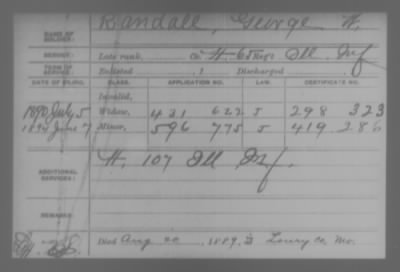 NAME OF SOLDIER: Randall, George W.
SERVICE: Late rank, Co. H. 65 Reg't Ill. Inf
TERM OF SERVICE: Enlisted , 1 Discharged
DATE OF FILING. CLASS. APPLICATION NO. LAW. CERTIFICATE NO.
Invalid,
1890 July 5 Widow, 421 622 J 298 323
1894 June 7 Minor, 596 775 J 419 286
ADDITIONAL SERVICES: H. 107 Ill Inf.
REMARKS:
Died Aug 20, 1889, Mo.